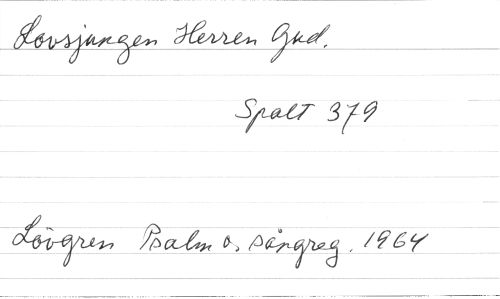 Lovsjungen Herren Gud.
Spalt 379
Lövgren Psalm o. sångreg. 1964